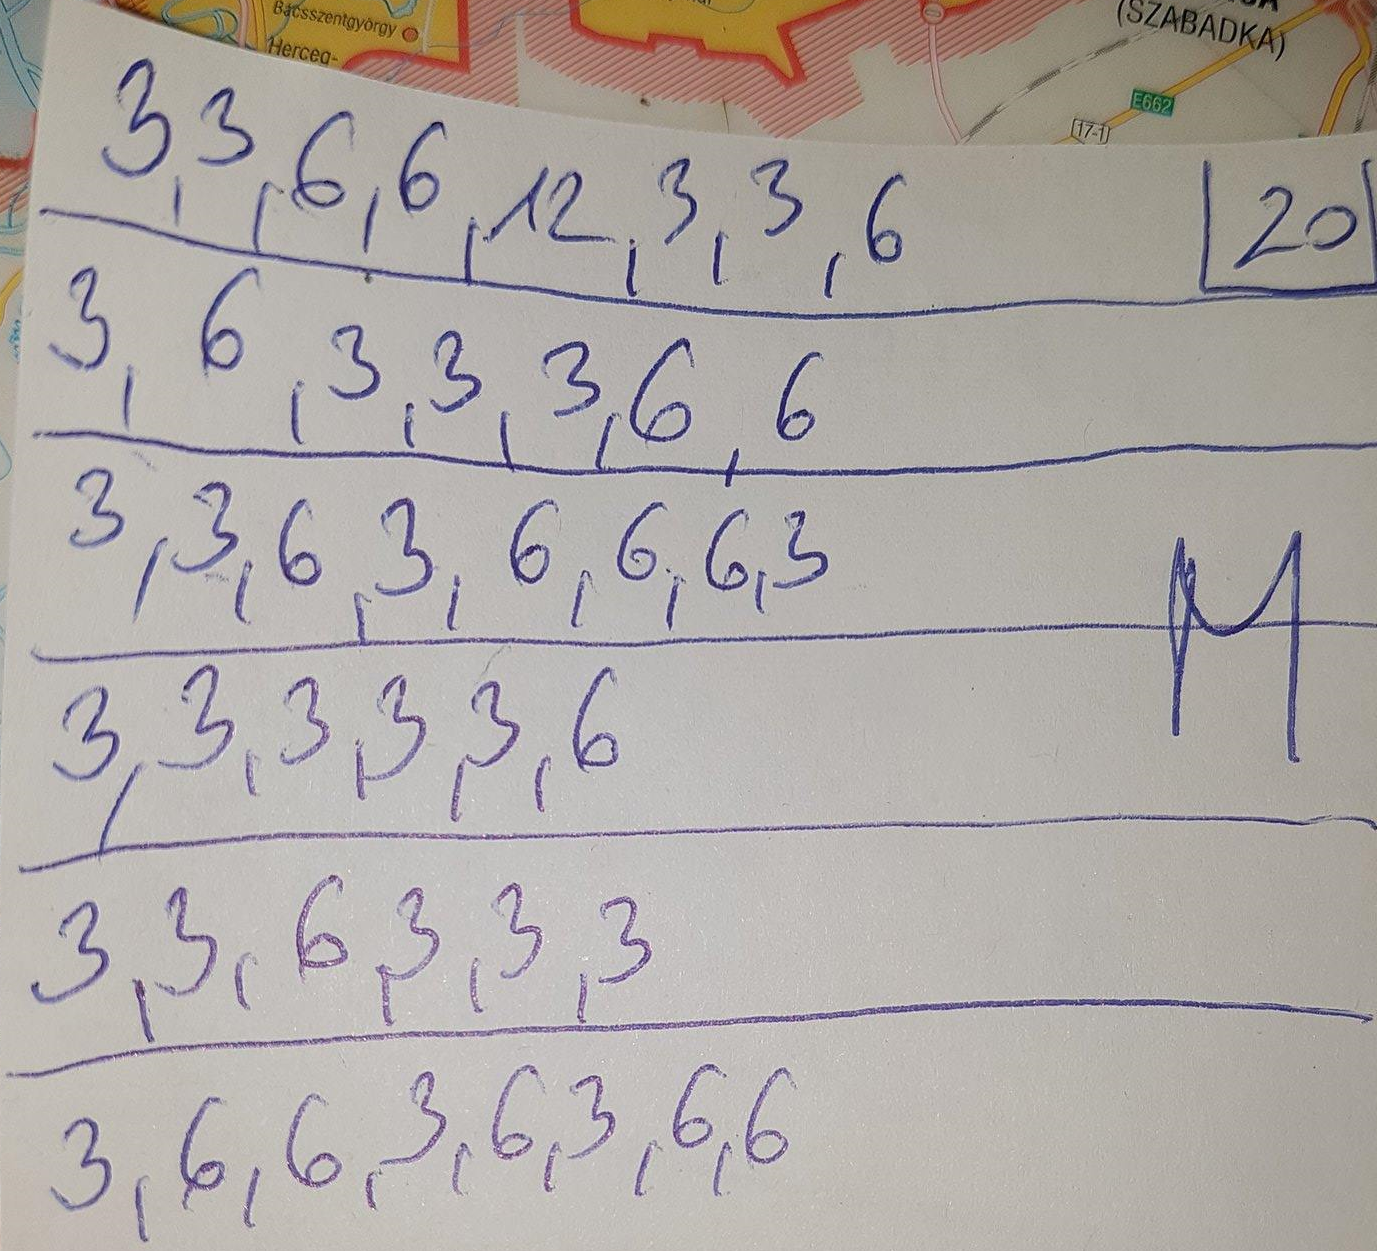 Bácsszentgyörgy
Herceg-
(SZABADKA)
E662
17-1
3, 3, 6, 6, 12, 3, 3, 6
20
3, 6, 3, 3, 3, 6, 6
3, 3, 6, 3, 6, 6, 6, 3
M
3, 3, 3, 3, 3, 6
3, 3, 6, 3, 3, 3
3, 6, 6, 3, 6, 3, 6, 6